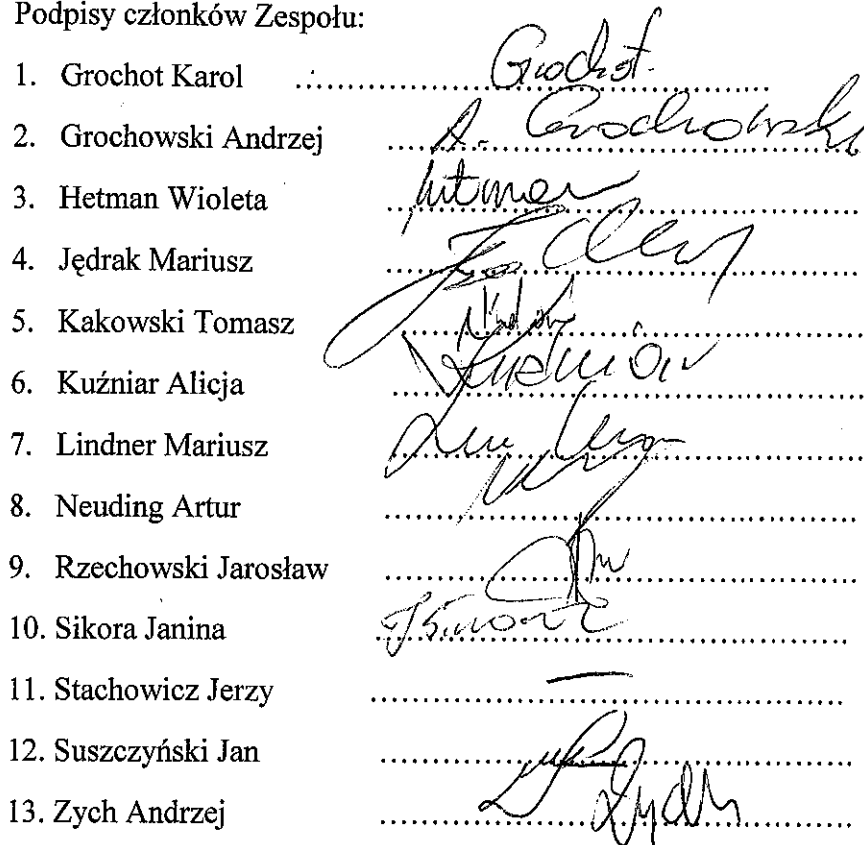 Podpisy członków Zespołu:
1. Grochot Karol Grochot.
2. Grochowski Andrzej A. Grochowski
3. Hetman Wioleta Hetman
4. Jędrak Mariusz
5. Kakowski Tomasz
6. Kuźniar Alicja Kuźniar
7. Lindner Mariusz
8. Neuding Artur
9. Rzechowski Jarosław
10. Sikora Janina JSikora
11. Stachowicz Jerzy —
12. Suszczyński Jan
13. Zych Andrzej Zych